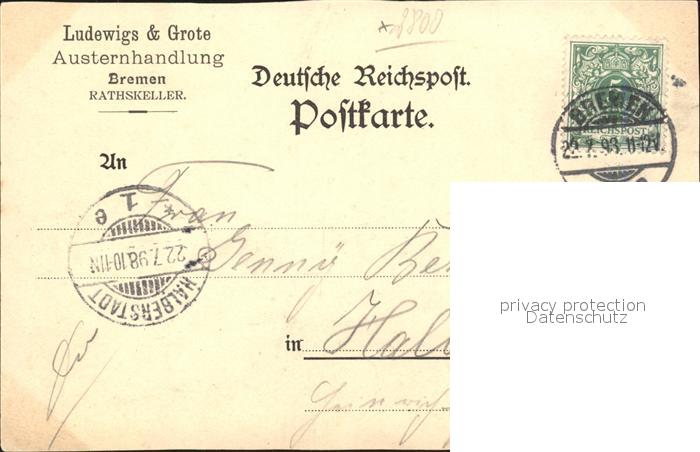 Ludewigs & Grote
Austernhandlung
Bremen
RATHSKELLER.
Deutsche Reichspost.
Postkarte.
5
REICHSPOST
BREMEN
22.7.98.11-12V.
An
Frau
Jenny
in
Heinrich
HALBERSTADT
22.7.98.10-11N
1 e
privacy protection
Datenschutz